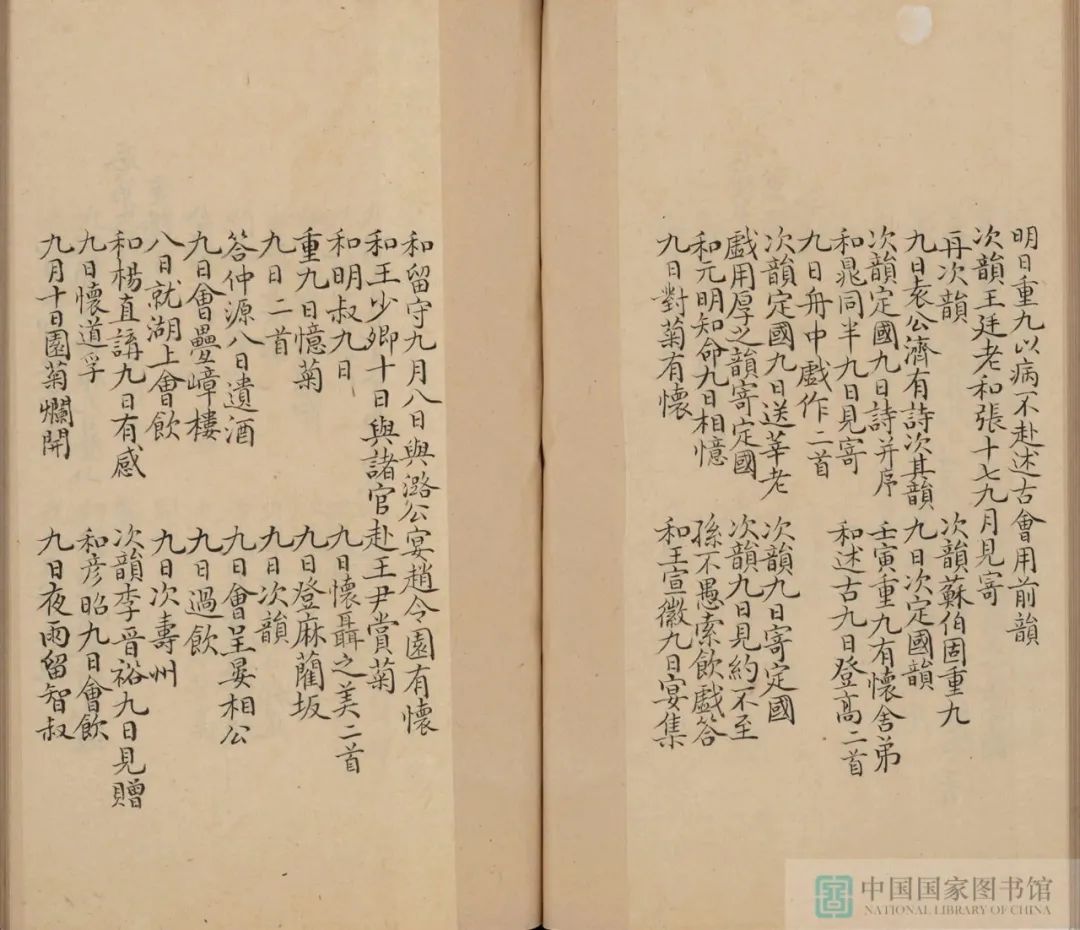 明日重九以病不赴述古會用前韻
次韻王廷老和張十七九月見寄
再次韻
次韻蘇伯固重九
九日袁公濟有詩次其韻
九日次定國韻
次韻定國九日詩并序
壬寅重九有懷舍弟
和晁同半九日見寄
和述古九日登高二首
九日舟中戲作二首
次韻定國九日送莘老
次韻九日寄定國
戲用厚之韻寄定國
次韻九日見約不至
和元明知命九日相憶
孫不愚索飲戲答
九日對菊有懷
和王宣徽九日宴集
和留守九月八日與潞公宴趙令園有懷
和王少卿十日與諸官赴王尹賞菊
和明叔九日
九日懷聶之美二首
重九日憶菊
九日登麻蘭坂
九日二首
九日次韻
答仲源八日遺酒
九日會呈晏相公
九日會疊嶂樓
九日過飲
八日就湖上會飲
九日次壽州
和楊直講九日有感
次韻李晉裕九日見贈
九日懷道孚
和彥昭九日會飲
九月十日園菊爛開
九日夜雨留智叔
中国国家图书馆
NATIONAL LIBRARY OF CHINA